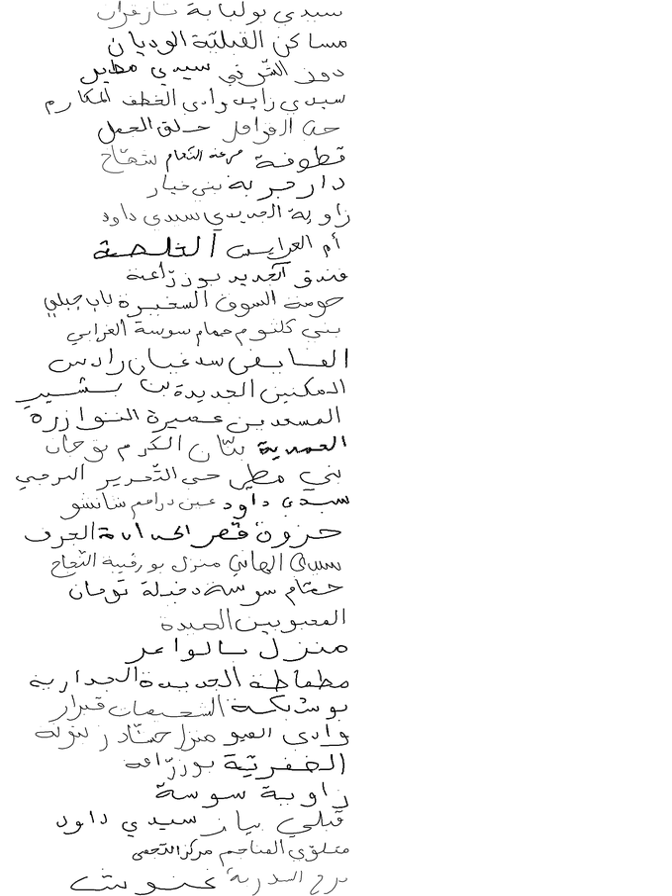 سيدي بولبابة تازغران
مساكن القبليّة الوديان
دوز الشّرقي سيدي مطير
سيدي زايد وادي الخطف المكارم
حلق الجمل
قطوفة مرغنة النّعام شمّاخ
دار جربة بني خيار
زاوية الجديدي سيدي داود
أم العرايس الخلصة
فندق الجديد بوزرّاعة
حومة السوق السخيرة باب جبلي
بني كلثوم حمام سوسة الغرابي
سدغيان رادس
المكنين الجديدة بن بشير
المسعدين عميرة النوازرة
العمرية بتّان الكرم بوجان
بني مطير حي التّحرير البرجي
سيدي داود عين دراهم شانشو
حزوة قصر الحدادة الجرف
سيدي الهاني منزل بورقيبة النّجاح
حمّام سوسة دخيلة توجان
الصيدة
منزل بالواعر
مطماطة الجديدة الجدارية
بوشبكة الشعيمات قبرار
وادي منزل حشّاد زنتونة
الخضريّة بوزرّاعة
زاوية سوسة
قبلي بياز سيدي داود
متلوّي المناجم مركز النّجمي
برج السدرية غنوش